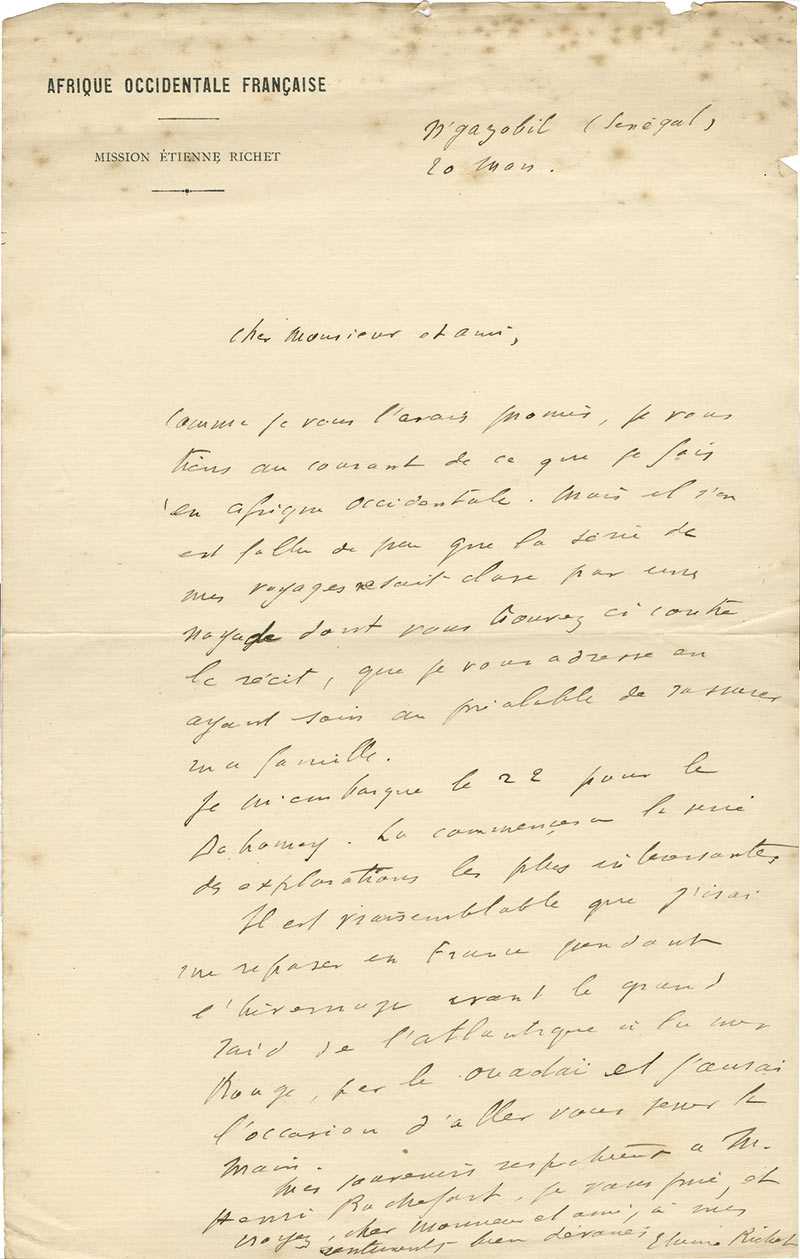 AFRIQUE OCCIDENTALE FRANÇAISE
MISSION ÉTIENNE RICHET
N'gazobil (Sénégal)
20 Mars.
Cher Monsieur et ami,
Comme je vous l'avais promis, je vous
tiens au courant de ce que je fais
en Afrique Occidentale. Mais il s'en
est fallu de peu que la série de
mes voyages ne soit close par une
noyade dont vous trouvez ci contre
le récit, que je vous adresse en
ayant soin au préalable de rassurer
ma famille.
Je m'embarque le 22 pour le
Dahomey. Là commencera la série
des explorations les plus intéressantes
Il est vraisemblable que j'irai
me reposer en France pendant
l'hivernage avant le grand
raid de l'Atlantique à la mer
Rouge, par le Ouadaï et j'aurai
l'occasion d'aller vous serrer la
main.
Mes souvenirs respectueux à M.
Henri Rochefort, je vous prie, et
croyez, cher Monsieur et ami, à mes
sentiments bien dévoués Etienne Richet